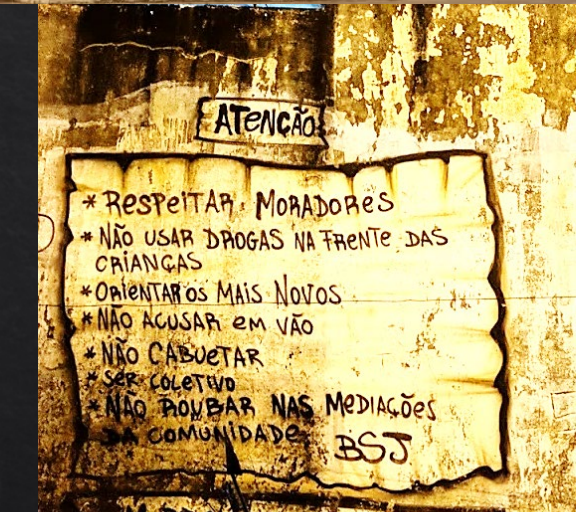 ATENÇÃO
* RESPEITAR MORADORES
* NÃO USAR DROGAS NA FRENTE DAS
CRIANÇAS
* ORIENTAR OS MAIS NOVOS
* NÃO ACUSAR EM VÃO
* NÃO CABUETAR
* SER COLETIVO
* NÃO ROUBAR NAS MEDIAÇÕES
DA COMUNIDADE BSJ